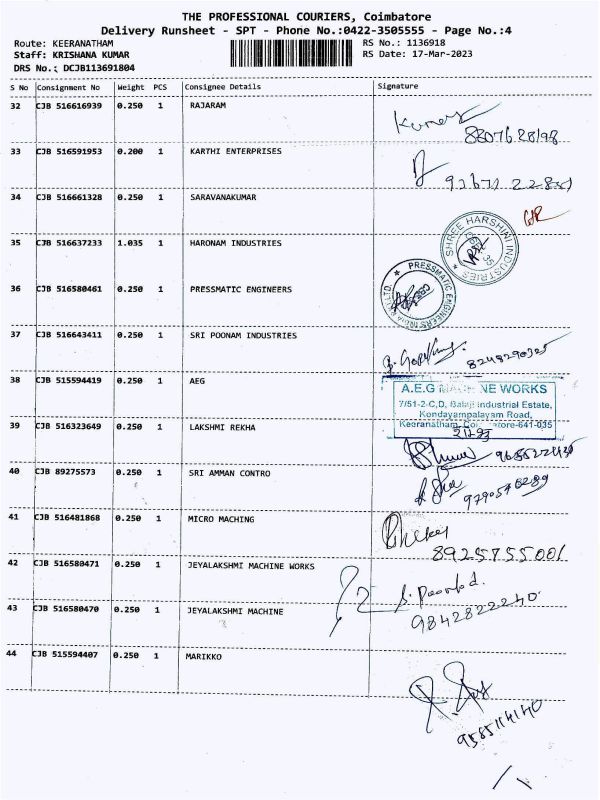 THE PROFESSIONAL COURIERS, Coimbatore
Delivery Runsheet - SPT - Phone No.:0422-3505555 - Page No.:4
Route: KEERANATHAM RS No.: 1136918
Staff: KRISHANA KUMAR RS Date: 17-Mar-2023
DRS No.: DCJB113691804
S No Consignment No Weight PCS Consignee Details Signature
32 CJB 516616939 0.250 1 RAJARAM
33 CJB 516591953 0.200 1 KARTHI ENTERPRISES
34 CJB 516661328 0.250 1 SARAVANAKUMAR
35 CJB 516637233 1.035 1 HARONAM INDUSTRIES
SHREE HARSHINI INDUSTRIES
36 CJB 516580461 0.250 1 PRESSMATIC ENGINEERS
PRESSMATIC ENGINEERS
37 CJB 516643411 0.250 1 SRI POONAM INDUSTRIES
8248290325
38 CJB 515594419 0.250 1 AEG
A.E.G MACHINE WORKS
7/51-2-C,D, Balaji Industrial Estate,
Kondayampalayam Road,
Keeranatham, Coimbatore-641-035
39 CJB 516323649 0.250 1 LAKSHMI REKHA
40 CJB 89275573 0.250 1 SRI AMMAN CONTRO
41 CJB 516481868 0.250 1 MICRO MACHING
8925755001
42 CJB 516580471 0.250 1 JEYALAKSHMI MACHINE WORKS
43 CJB 516580470 0.250 1 JEYALAKSHMI MACHINE
9842822240
44 CJB 515594407 0.250 1 MARIKKO
9585114140